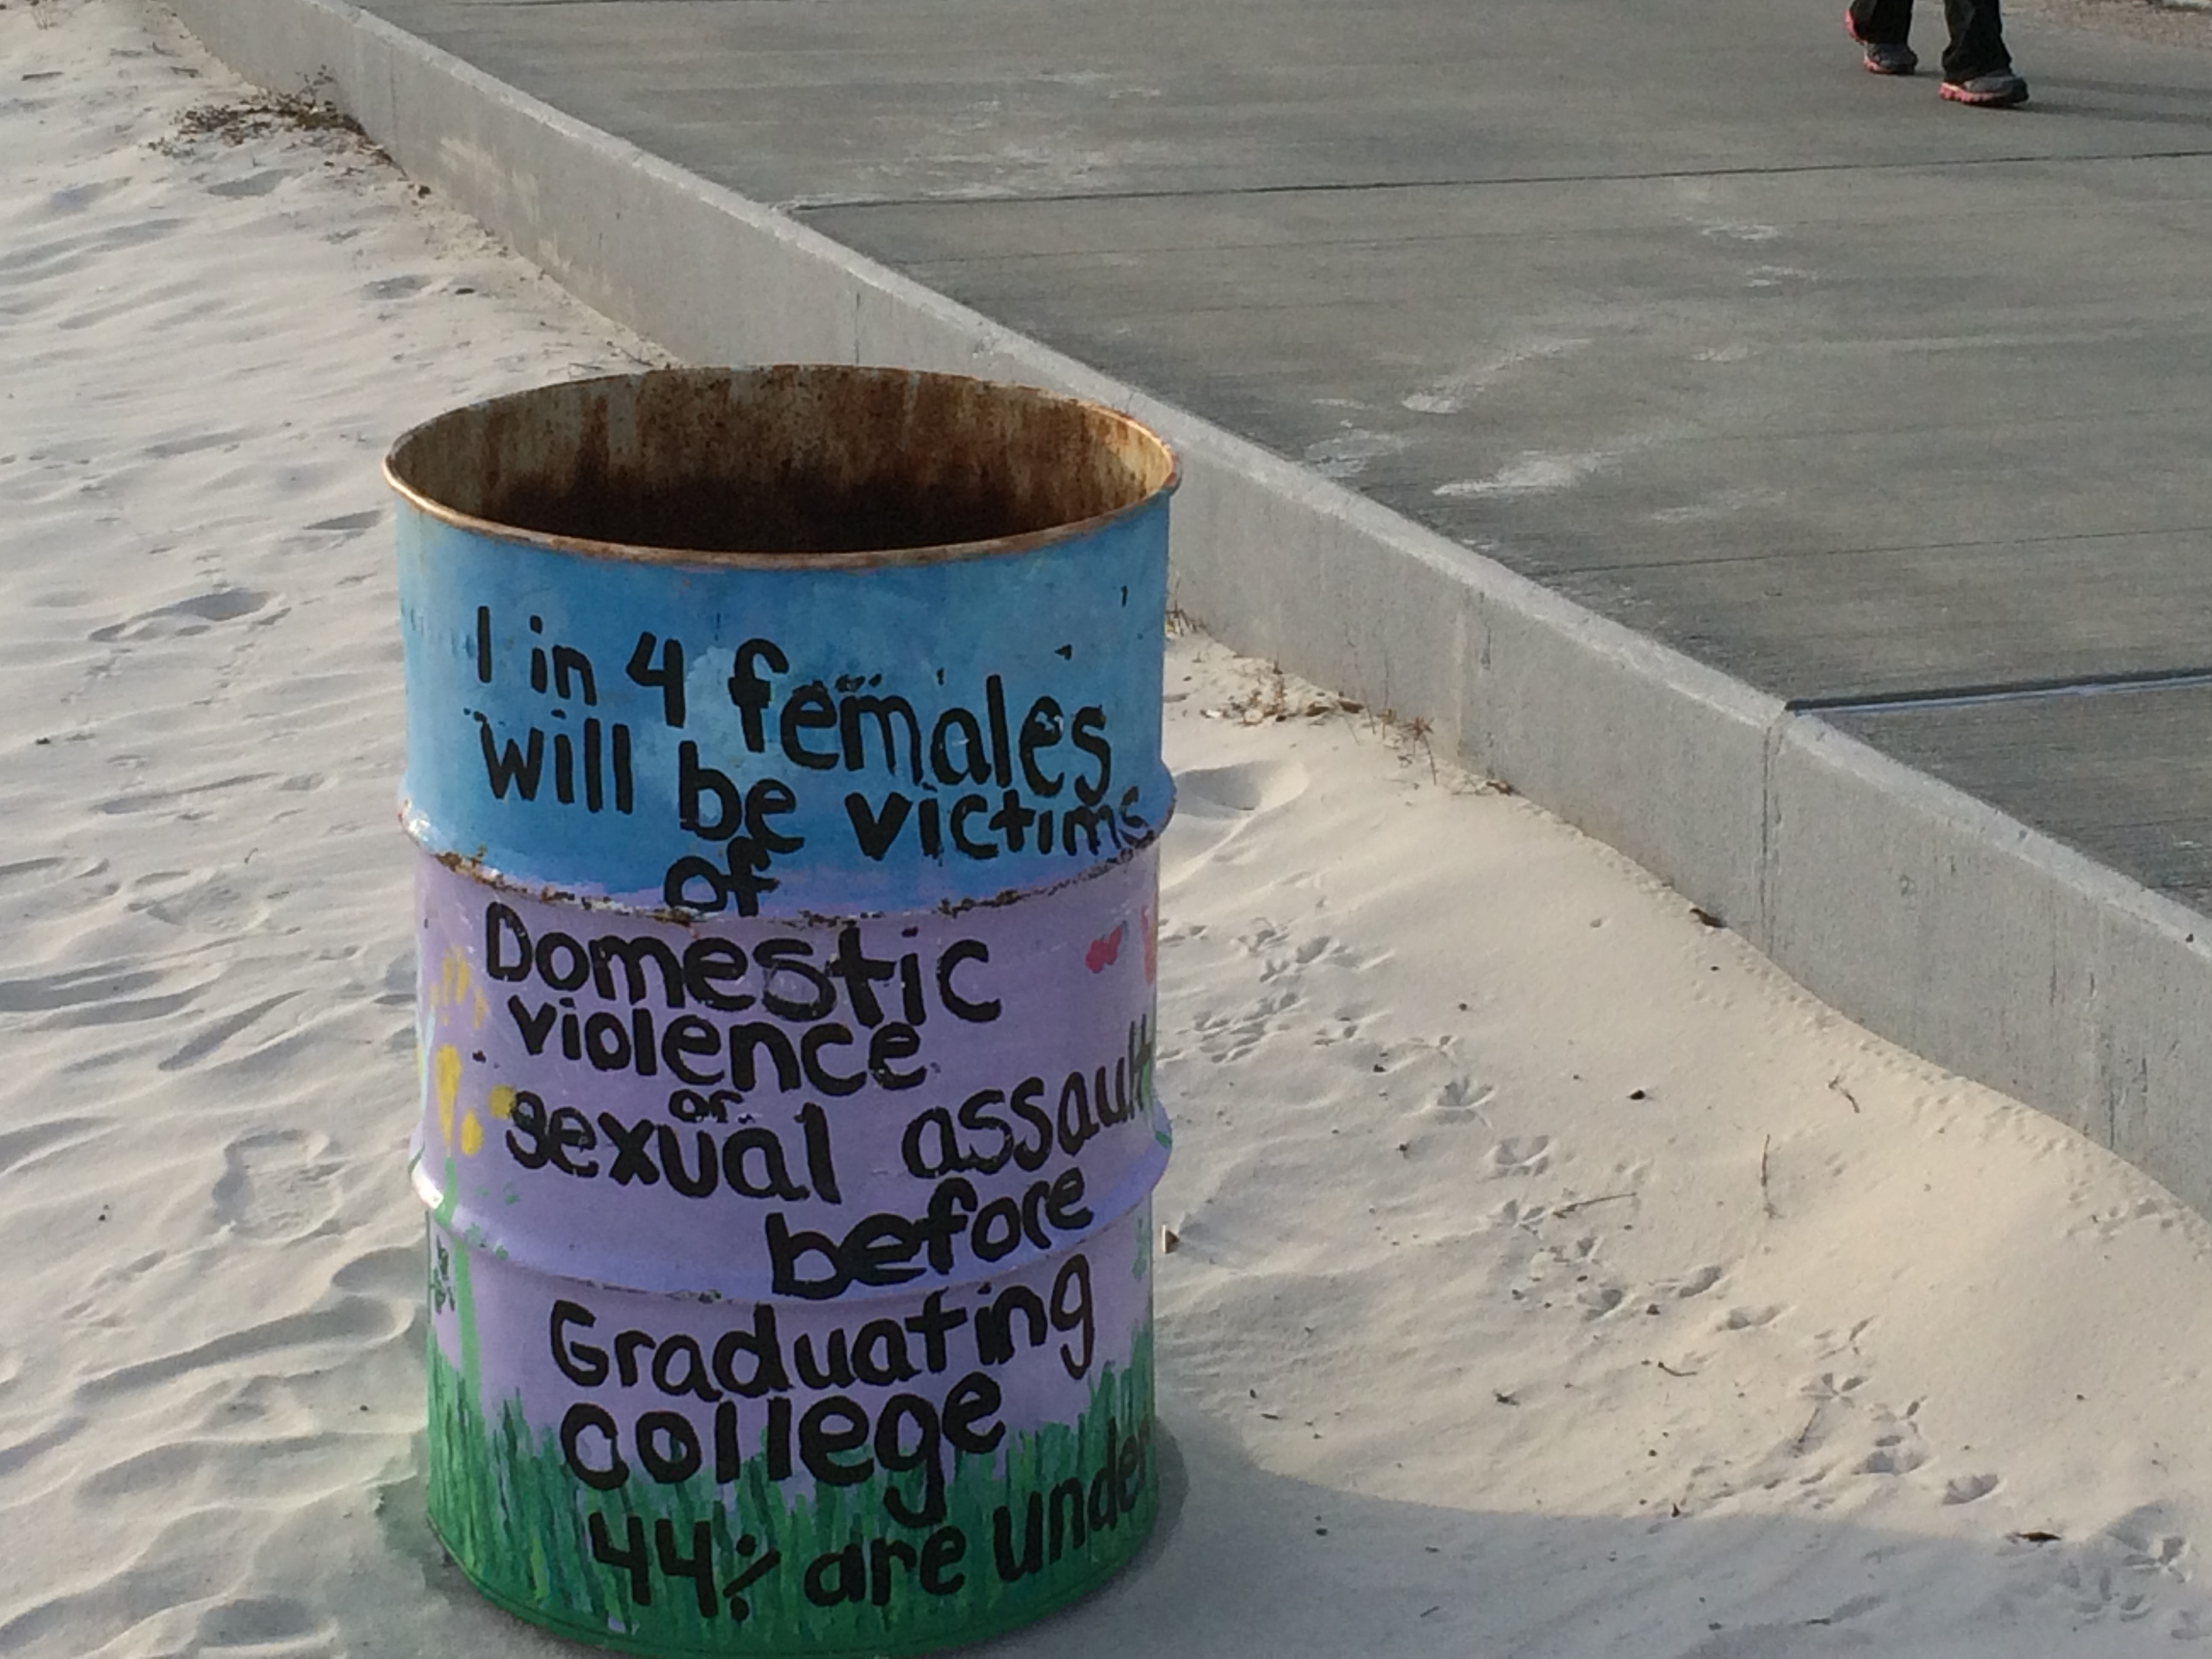 1 in 4 females
will be victims
of
Domestic
violence
or
sexual assault
before
Graduating
college
44% are under